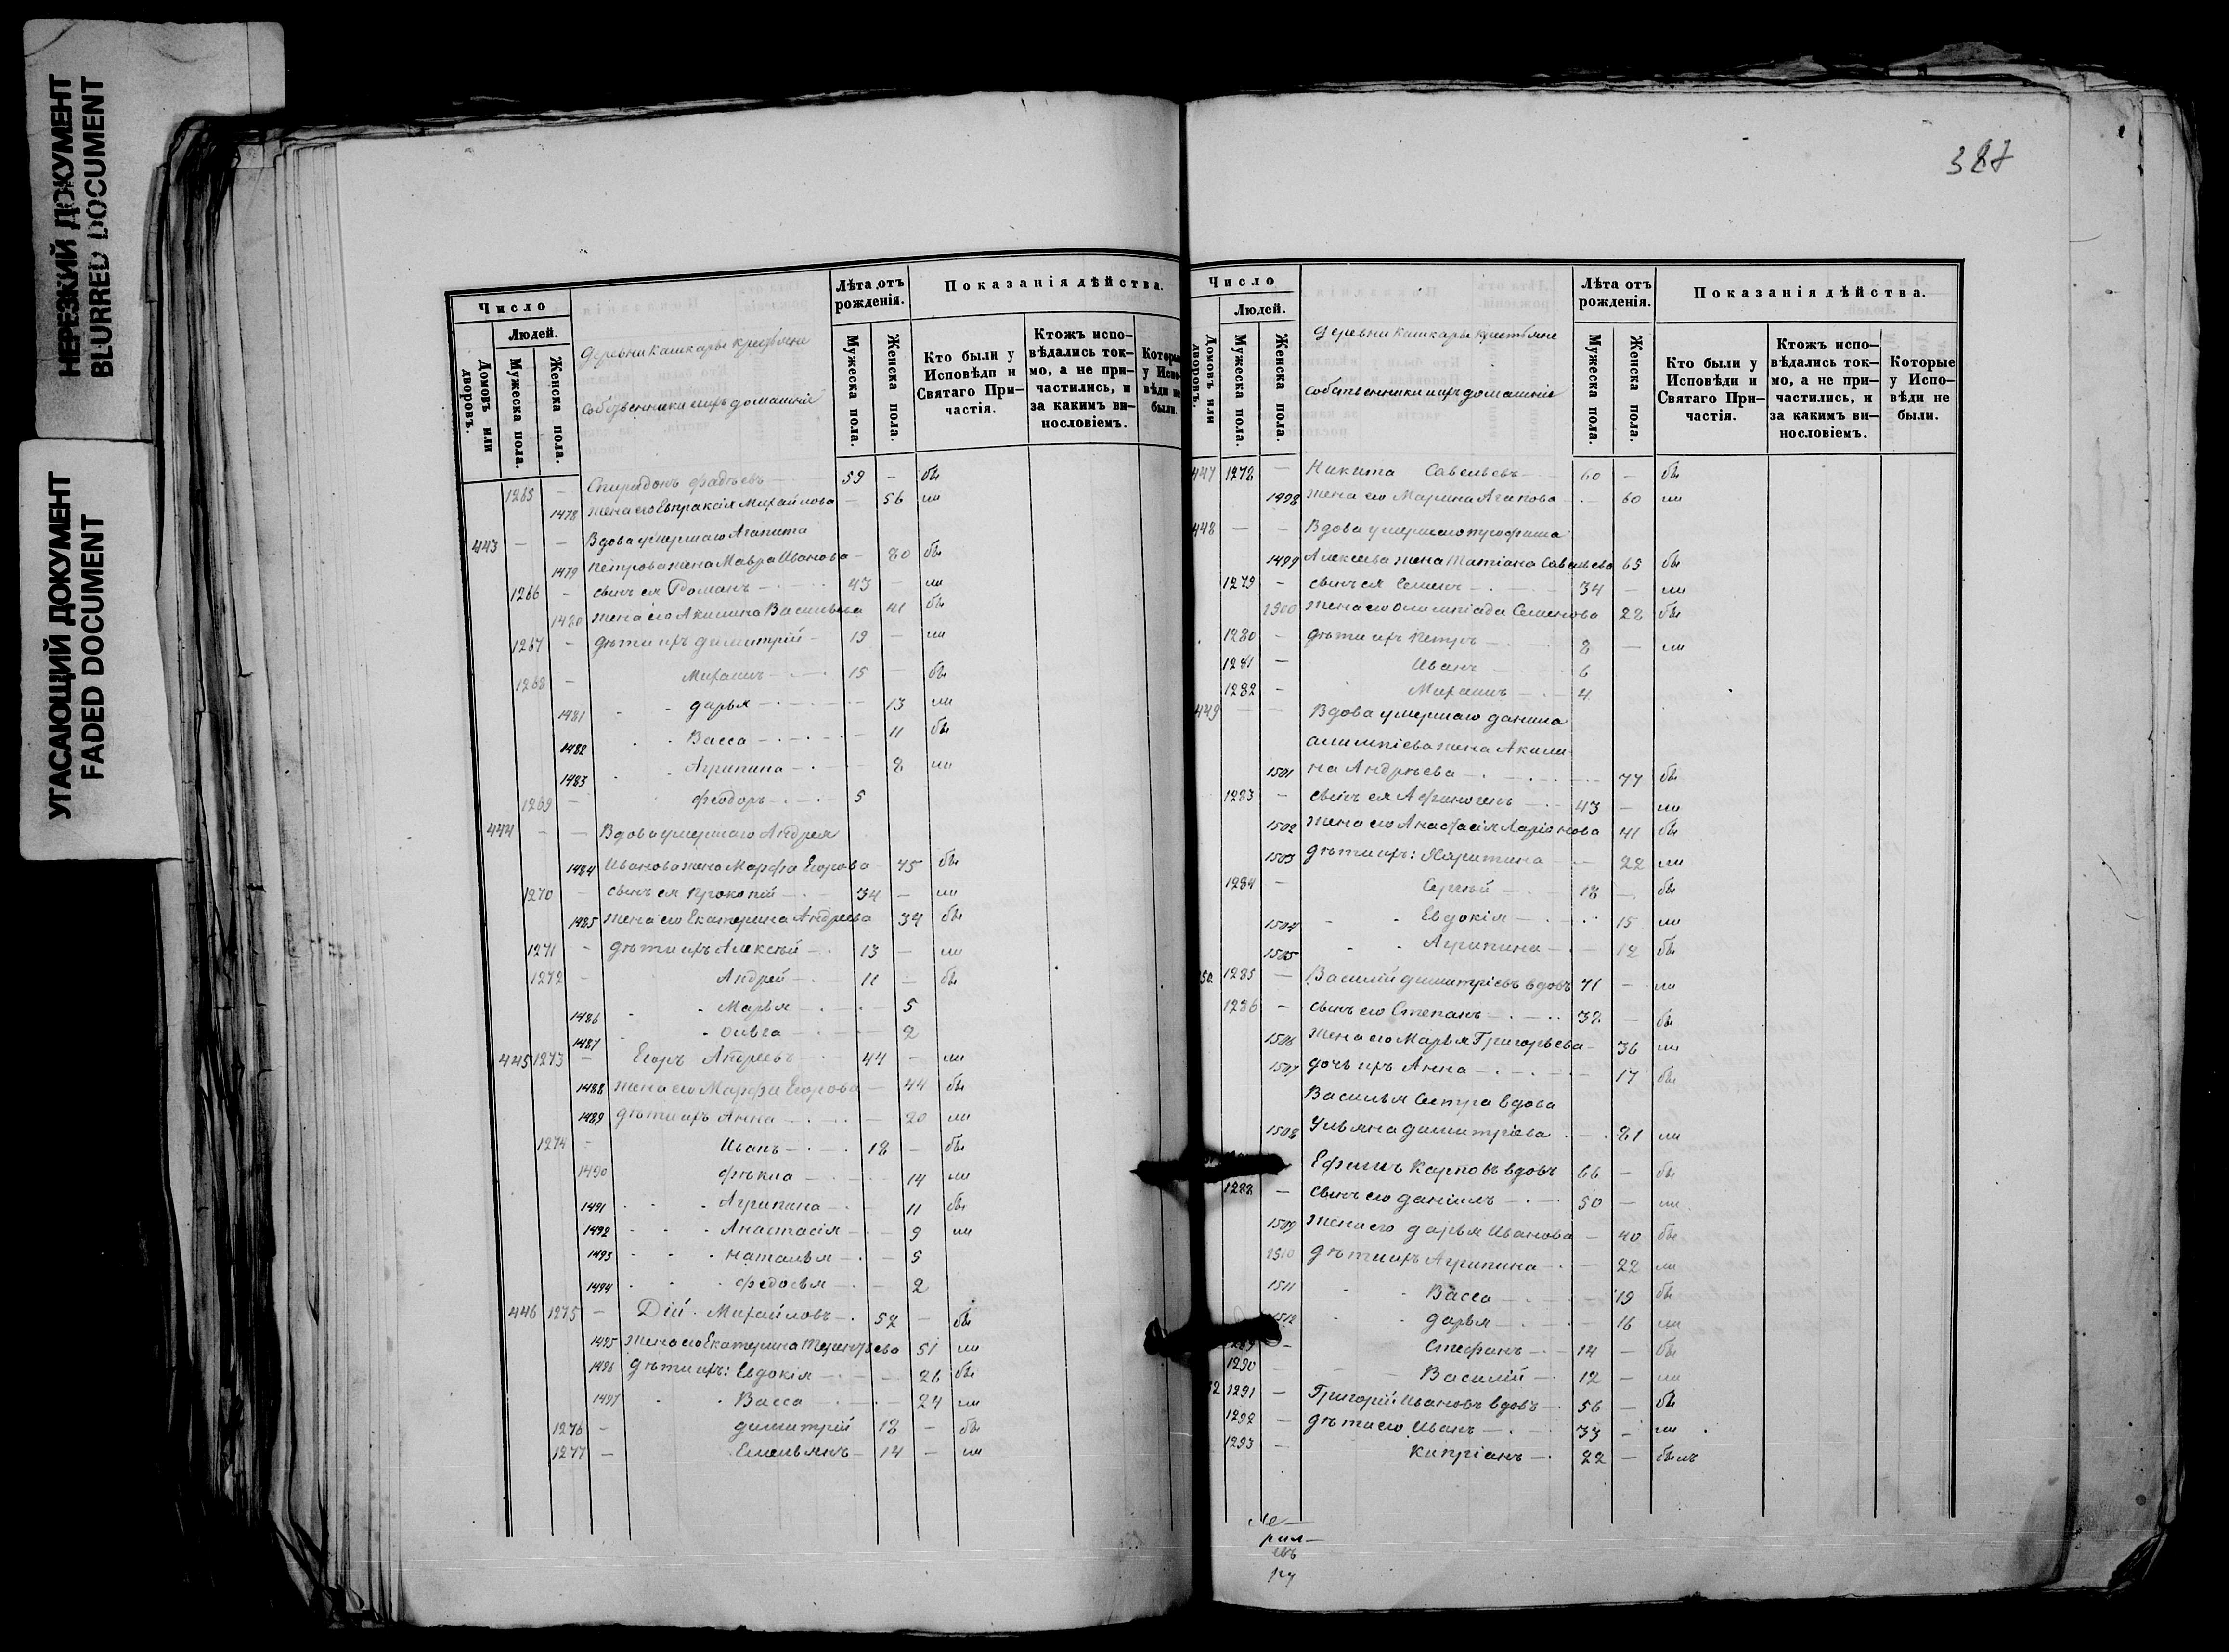 НЕРЕЗКИЙ ДОКУМЕНТ
BLURRED DOCUMENT
УГАСАЮЩИЙ ДОКУМЕНТ
FADED DOCUMENT
Число
Людей.
Домовъ или дворовъ.
Мужеска пола.
Женска пола.
Деревни Кашкары крестьяне
собственники ихъ домашніе
Лѣта отъ рожденія.
Мужеска пола.
Женска пола.
Показанія дѣйства.
Кто были у Исповѣди и Святаго Причастія.
Ктожъ исповѣдались токмо, а не причастились, и за какимъ винословіемъ.
Которые у Исповѣди не были.
1265 — Спиридонъ Фадѣевъ 59 — бы
1478 жена его Евпраксія Михайлова — 56 ли
443 — — Вдова умершаго Агапита
1479 Петрова жена Мавра Иванова — 80 бы
1266 — сынъ ея Романъ 43 — ли
1480 жена его Акилина Васильева 41 бы
1267 — дѣти ихъ Димитрій 19 — ли
1268 — Михаилъ 15 — бы
1481 Дарья 13 ли
1482 Васса 11 бы
1483 Агрипина 8 ли
1269 — Феодоръ 5
444 — — Вдова умершаго Андрея
1484 Иванова жена Марфа Егорова 75 бы
1270 — сынъ ея Прокопій 34 — ли
1485 жена его Екатерина Андреева 34 бы
1271 — дѣти ихъ Алексѣй 13 — ли
1272 — Андрей 11 — бы
1486 Марья 5
1487 Ольга 2
445 1273 — Егоръ Андреевъ 44 — ли
1488 жена его Марфа Егорова — 44 бы
1489 дѣти ихъ Анна — 20 ли
1274 — Иванъ 18 — бы
1490 Фекла 14 ли
1491 Агрипина 11 бы
1492 Анастасія 9 ли
1493 Наталья 5
1494 Федосья 2
446 1275 — Дій Михайловъ 52 — бы
1495 жена его Екатерина Терентьева 51 ли
1496 дѣти ихъ: Евдокія 26 бы
1497 Васса 24 ли
1276 — Димитрій 18 — бы
1277 — Емельянъ 14 — ли
387
Число
Людей.
Домовъ или дворовъ.
Мужеска пола.
Женска пола.
Деревни Кашкары крестьяне
собственники ихъ домашніе
Лѣта отъ рожденія.
Мужеска пола.
Женска пола.
Показанія дѣйства.
Кто были у Исповѣди и Святаго Причастія.
Ктожъ исповѣдались токмо, а не причастились, и за какимъ винословіемъ.
Которые у Исповѣди не были.
447 1278 — Никита Савельевъ 60 — бы
1498 жена его Марина Агапова 60 ли
448 — — Вдова умершаго Трофима
1499 Алексѣева жена Татіана Савельева 65 бы
1279 — сынъ ея Семенъ 34 — ли
1500 жена его Олимпіада Семенова 28 бы
1280 — дѣти ихъ Петръ 8 — ли
1281 — Иванъ 6
1282 — Михаилъ 4
449 — — Вдова умершаго Данила
Алимпіева жена Акили-
1501 на Андрѣева 77 бы
1283 — сынъ ея Афиногенъ 43 — ли
1502 жена его Анастасія Ларіонова 41 бы
1503 дѣти ихъ: Харитина 22 ли
1284 — Сергѣй 18 — бы
1504 Евдокія 15 ли
1505 Агрипина 12 бы
450 1285 — Василій Димитріевъ вдовъ 71 — ли
1286 — сынъ его Степанъ 38 — бы
1506 жена его Марья Григорьева 36 ли
1507 дочь ихъ Анна 17 бы
Василья сестра вдова
1508 Ульяна Димитріева 81 ли
Ефимъ Карповъ вдовъ 66 — бы
1288 — сынъ его Даніилъ 50 — ли
1509 жена его Дарья Иванова — 40 бы
1510 дѣти ихъ Агрипина 22 ли
1511 Васса 19 бы
1512 Дарья 16 ли
1289 — Стефанъ 14 — бы
1290 — Василій 12 — ли
52 1291 — Григорій Ивановъ вдовъ 56 — бы
1292 — дѣти его Иванъ 33 — ли
1293 — Кипріанъ 22 — былъ